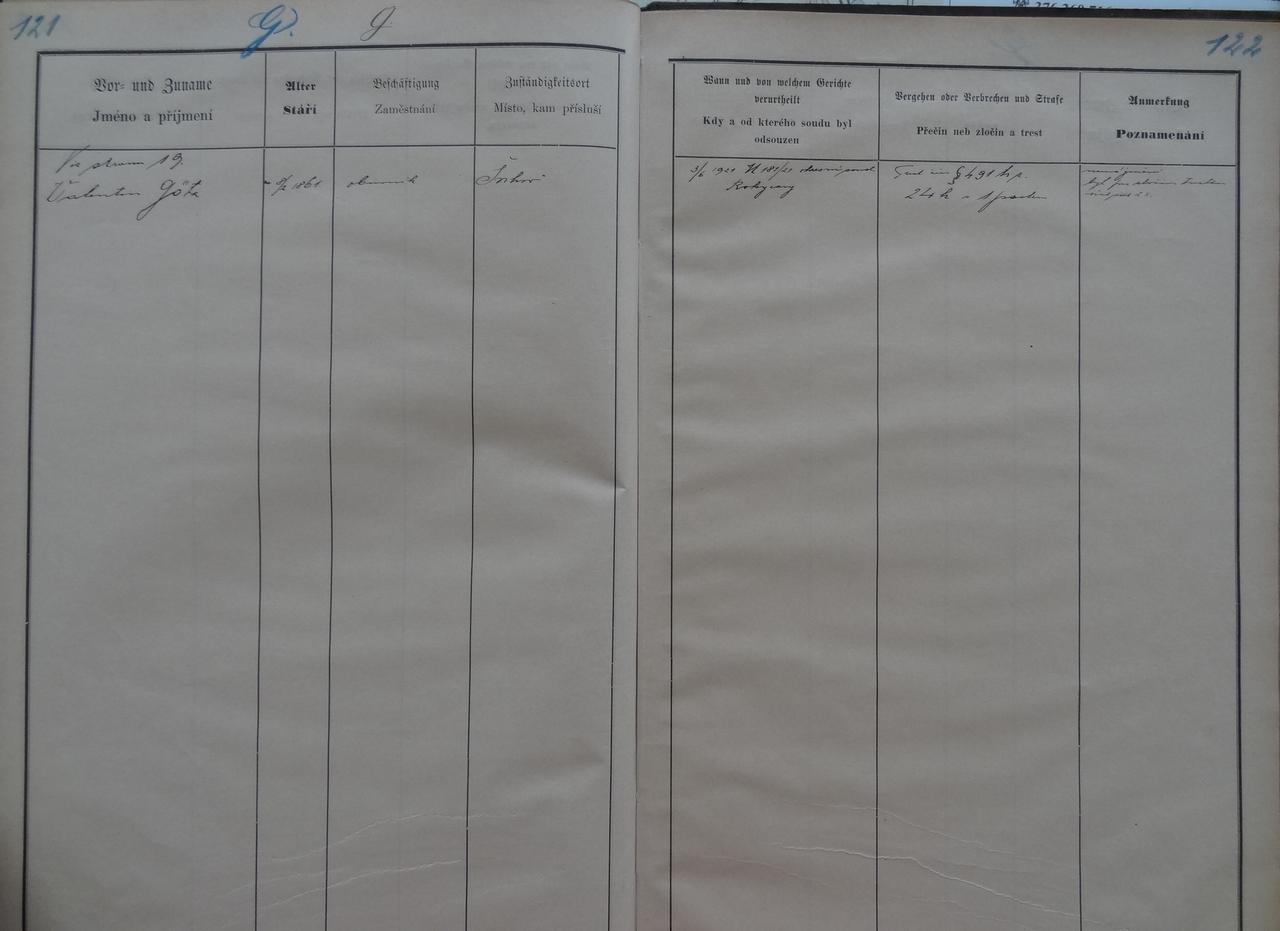 121
G. g
Vor- und Zuname
Jméno a příjmení
Alter
Stáří
Beschäftigung
Zaměstnání
Zuständigkeitsort
Místo, kam přísluší
19.
Valentin Götz
1861
obuvník
122
Wann und von welchem Gerichte
verurtheilt
Kdy a od kterého soudu byl
odsouzen
Vergehen oder Verbrechen und Strafe
Přečin neb zločin a trest
Anmerkung
Poznamenání
3/6 1921 181/21
Rokycany
§ 491 tr. z.
24 h